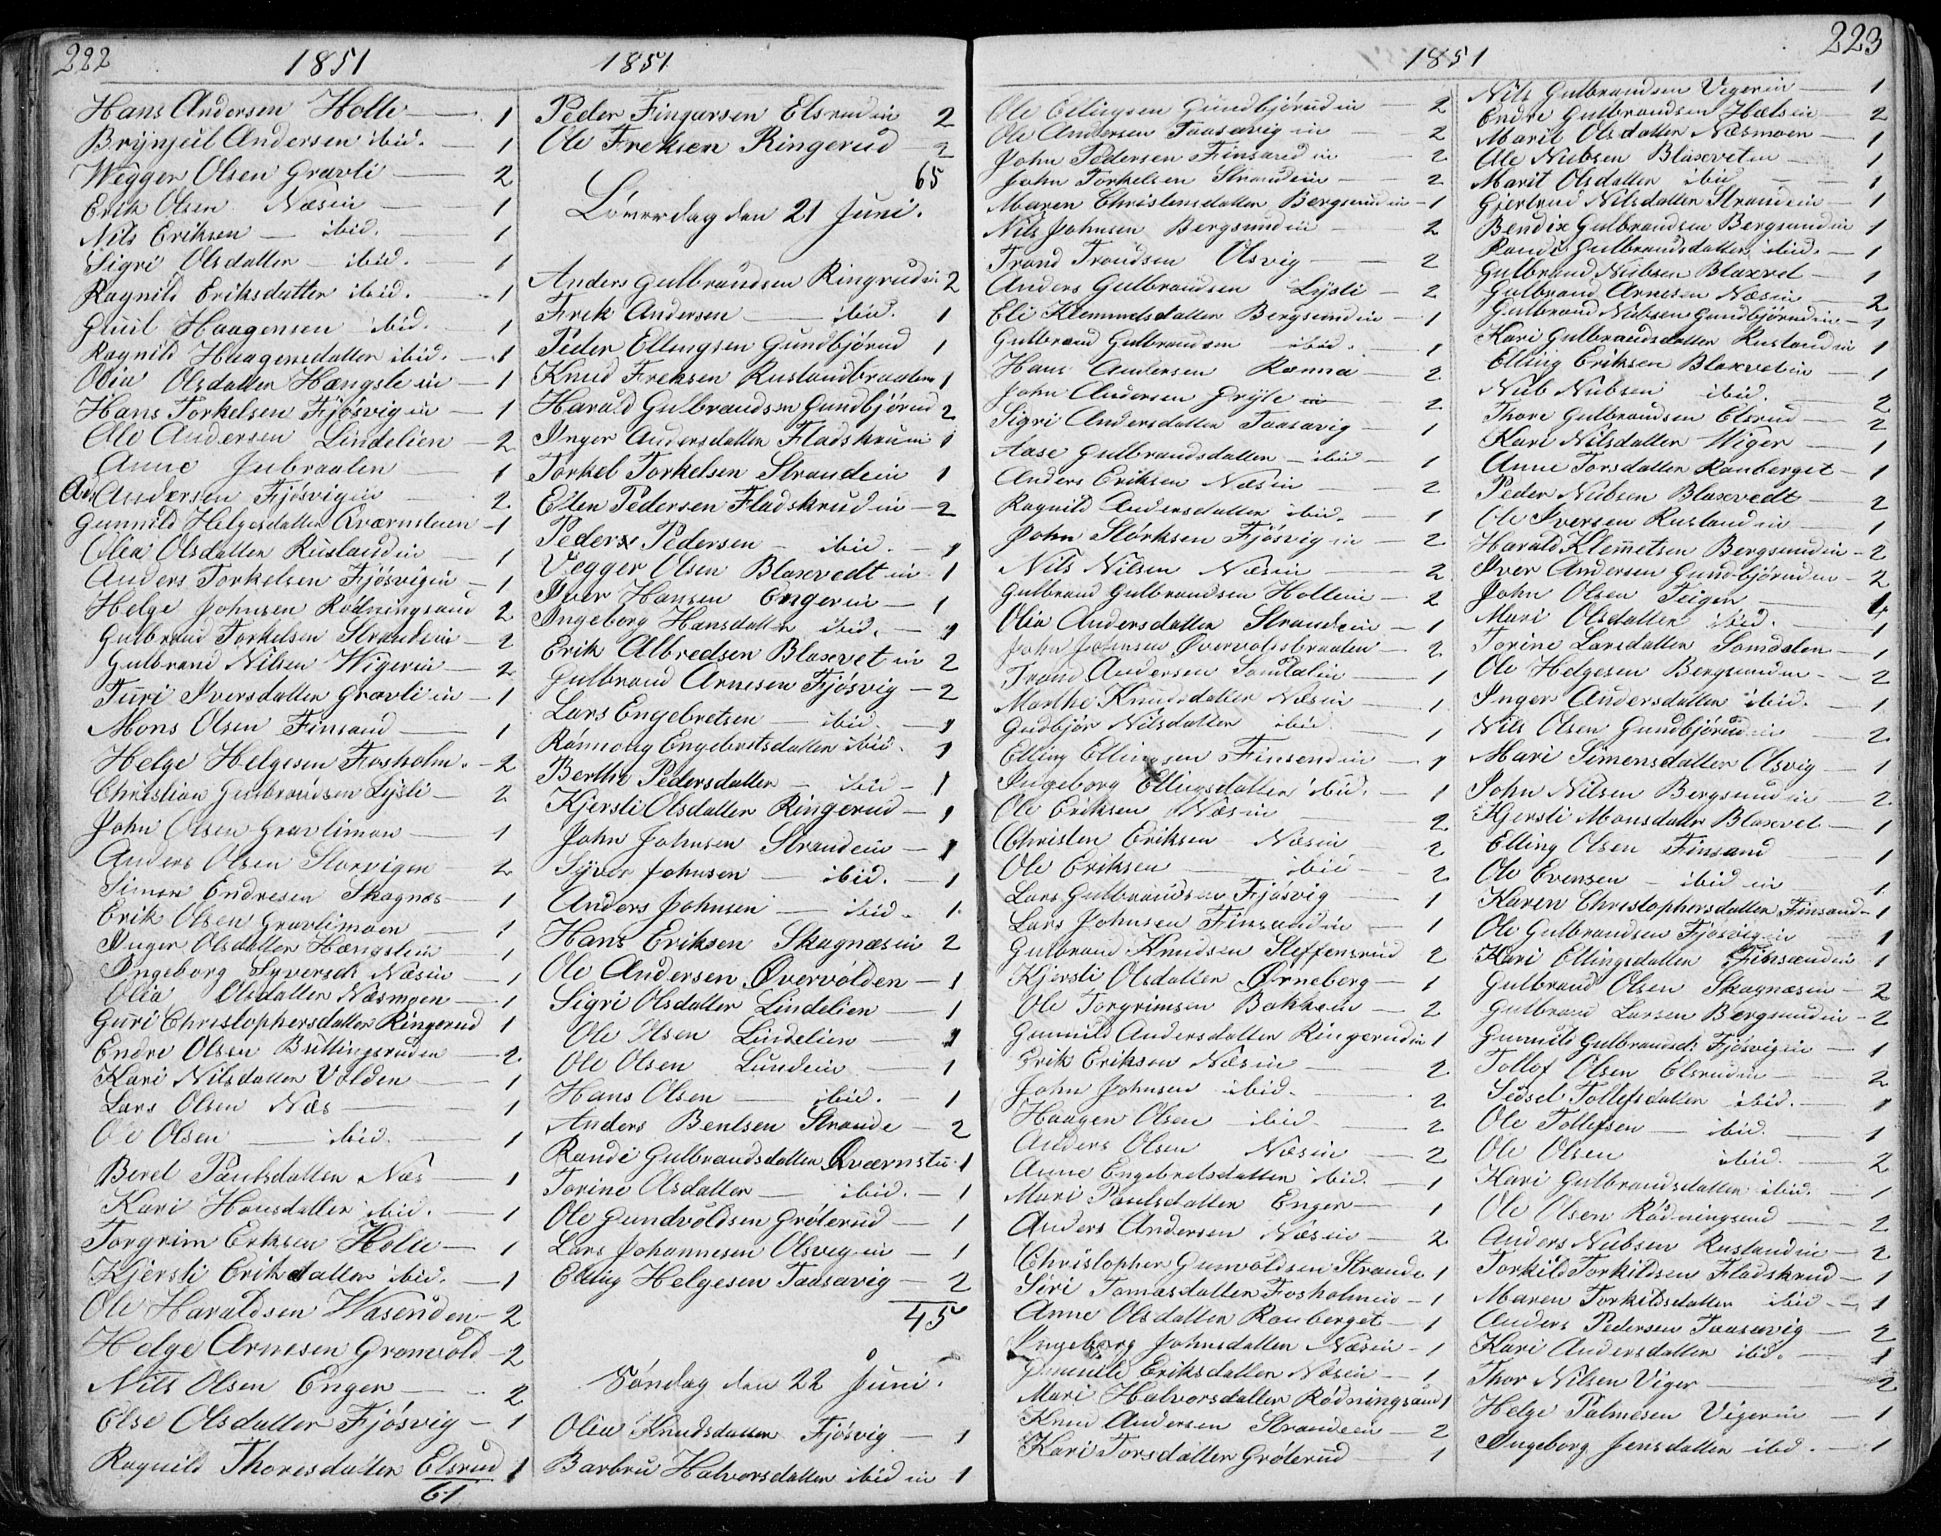 222
1851
Hans Andersen Holle — 1
Brynjul Andersen ibid. — 1
Wegger Olsen Gravli — 2
Erik Olsen Næsin — 1
Nils Eriksen — ibid. — 1
Sigri Olsdatter — ibid. — 1
Ragnild Eriksdatter ibid. — 1
Haagensen ibid. — 1
Ragnild Haagensdatter ibid. — 1
Olia Olsdatter Hængsle in — 1
Hans Torkelsen Fjøsvigin — 1
Ole Andersen Lindelien — 2
Anne Jubraaten — 1
And Andersen Fjøsvigin — 2
Gunnild Helgesdatter Qværnsteien — 1
Olia Olsdatter Ruslandin — 1
Anders Torkelsen Fjøsvigin — 1
Helge Johnsen Rødningsand 2
Gulbrand Torkelsen Strandein — 2
Gulbrand Nilsen Wigerin — 2
Turi Iversdatter Gravli in — 1
Mons Olsen Finsand — 1
Helge Helgesen Fosholm. — 2
Christian Gulbrandsen Lysli — 2
John Olsen Gravlimon — 1
Anders Olsen Storvigen — 2
Simon Endresen Skagnæs — 1
Erik Olsen Gravlimoen — 1
Inger Olsdatter Hængslein — 1
Ingeborg Syversd. Næsin — 1
Olia Olsdatter Næsmoen — 1
Guri Christophersdatter Ringerud 1
Endre Olsen Buttingsruden — 2
Kari Nilsdatter Volden — 1
Lars Olsen Næs — 1
Ole Olsen — ibid. — 1
Beret Paulsdatter Næs — 1
Kari Hansdatter ibid. — 1
Torgrim Eriksen Holle — 1
Kjersti Eriksdatter ibid. — 1
Ole Haraldsen Wasenden — 2
Helge Arnesen Grønvold — 2
Nils Olsen Enger — 2
Else Olsdatter Fjøsvig — 1
Ragnild Thoresdatter Elsrud 1
61
1851
Peder Fingarsen Elsrudin 2
Ole Freksen Ringerud — 2
65
Løverdag den 21 Juni.
Anders Gulbrandsen Ringrudin 2
Frek Andersen — ibid. 1
Peder Ellingsen Gundbjørud 1
Knud Freksen Ruslandbraaten 1
Harald Gulbrandsen Gundbjørud 2
Inger Andersdatter Fladskrudin 1
Torkel Torkelsen Strandein 1
Ellen Pedersen Fladskrud in — 2
Peder Pedersen — ibid. — 1
Vegger Olsen Blaxvedt in 1
Iver Hansen Engerin — 1
Ingeborg Hansdatter ibid. — 1
Erik Albredsen Blaxevet in 2
Gulbrand Arnesen Fjøsvig — 2
Lars Engebretsen — ibid. — 1
Rønnoug Engebretsdatter ibid. 1
Berthe Pedersdatter — ibid — 1
Kjersti Olsdatter Ringerud — 1
John Johnsen Strandein — 1
Syver Johnsen — ibid. — 1
Anders Johnsen — ibid — 1
Hans Eriksen Skagnæsin 2
Ole Andersen Øvervolden — 1
Sigri Olsdatter Lindelien — 1
Ole Olsen Lindelien — 1
Ole Olsen Lundein — 1
Hans Olsen — ibid. — 1
Anders Bentsen Strande — 2
Randi Gulbrandsdatter Qværnstu 1
Torine Olsdatter — ibid. — 1
Ole Gundvoldsen Grøterud — 1
Lars Johannesen Olsvegin — 1
Elling Helgesen Taasavig — 2
45
Søndag den 22 Juni.
Olia Knudsdatter Fjøsvig — 1
Barbru Halvorsdatter ibid in — 1
223
1851
Ole Ellingsen Gundbjørud in — 2
Ole Andersen Taasavig in — 2
John Pedersen Finsand in — 2
John Torkelsen Strandein — 2
Maren Christensdatter Bergsundin — 1
Nils Johnsen Bergsundin — 2
Trond Trondsen Olsvig — 2
Anders Gulbrandsen Lysli — 2
Eli Klemmetsdatter Bergsundin — 1
Gulbrand Gulbrandsen ibid. — 1
Hans Andersen Rønna — 2
John Andersen Gryte in — 2
Sigri Andersdatter Taasavig — 1
Aase Gulbrandsdatter — ibid — 1
Anders Eriksen Næsin — 2
Ragnild Andersdatter ibid. — 1
John Størksen Fjøsvig in — 2
Nils Nilsen Næsin — 2
Gulbrand Gulbrandsen Hollein — 2
Olia Andersdatter Strandein — 1
John Johnsen Øvervolsbraaten — 2
Trond Andersen Somdalin — 1
Marthe Knudsdatter Næsin — 1
Gudbjør Nilsdatter ibid — 1
Elling Ellingsen Finsendin — 1
Ingeborg Ellingsdatter ibid. — 1
Ole Eriksen Næsin — 2
Christen Eriksen Næsin 2
Ole Eriksen — ibid — 2
Lars Gulbrandsen Fjøsvig — 1
Lars Johnsen Finsandin — 1
Gulbrand Knudsen Steffensrud 2
Kjersti Olsdatter Ørneberg — 1
Ole Torgrimsen Bakken — 2
Gunnild Andersdatter Ringerudin 1
Erik Eriksen Næsin — 2
John Johnsen ibid. — 2
Haagen Olsen ibid — 2
Anders Olsen Næsin — 2
Anne Engebretsdatter ibid. — 1
Mari Paulsdatter Enger — 1
Anders Andersen Næsin — 2
Christopher Gunvoldsen Strande 1
Siri Tomasdatter Fosholmein — 1
Anne Olsdatter Rauberget — 1
Ingeborg Johnsdatter Næsin — 1
Gunnild Eriksdatter Næsin — 1
Mari Halvorsdatter Rødningsand 1
Knud Andersen Strandein — 2
Kari Torsdatter Grøterud — 1
Nils Gulbrandsen Vigerin — 1
Endre Gulbrandsen Hælsin — 2
Marit Olsdatter Næsmoen — 1
Ole Nielsen Blaxvetin — 1
Marit Olsdatter ibid — 1
Gjertrud Nilsdatter Strandein — 1
Bendix Gulbrandsen Bergsundin 1
Randi Gulbrandsdatter ibid. — 1
Gulbrand Nielsen Blaxvet — 1
Gulbrand Arnesen Næsin — 2
Gulbrand Nielsen Gundbjørudin — 1
Kari Gulbrandsdatter Ruslandin 1
Elling Eriksen Blaxvetin — 1
Niels Nielsen ibid. — 2
Thore Gulbrandsen Elsrud — 2
Kari Nilsdatter Wiger — 1
Anne Torsdatter Rauberget — 1
Peder Nielsen Blaxvedt — 2
Ole Iversen Ruslandin — 1
Harald Klemetsen Bergsundin — 2
Iver Andersen Gundbjørudin — 2
John Olsen Teigen — 1
Mari Olsdatter ibid. — 1
Torine Larsdatter Somdalen — 1
Ole Helgesen Bergsundin — 2
Inger Andersdatter ibid. — 1
Nils Olsen Gundbjørudin — 2
Mari Simensdatter Olsvig — 1
John Nilsen Bergsundin — 2
Kjersti Monsdatter Blaxvet — 1
Elling Olsen Finsand — 1
Ole Evensen — ibid in — 1
Karen Christophersdatter Finsand — 1
Ole Gulbrandsen Fjøsvigin — 1
Kari Ellingsdatter Finsendin 1
Gulbrand Olsen Skagnæsin — 2
Gulbrand Larsen Bergsundin — 2
Gunnild Gulbrandsd. Fjøsvigin — 1
Tollof Olsen Elsrudin — 2
Sidsel Tollefsdatter ibid. — 1
Ole Tollefsen — ibid. — 1
Ole Olsen ibid. — 2
Kari Gulbrandsdatter ibid. — 1
Ole Olsen Rødningsand — 2
Anders Nielsen Ruslandin — 2
Torkild Torkildsen Fladskrud — 1
Maren Torkildsdatter ibid — 1
Anders Pedersen Taasavig — 2
Kari Andersdatter ibid. — 1
Thor Nilsen Viger — 2
Helge Palmesen Vigerin — 1
Ingeborg Jensdatter ibid. — 1